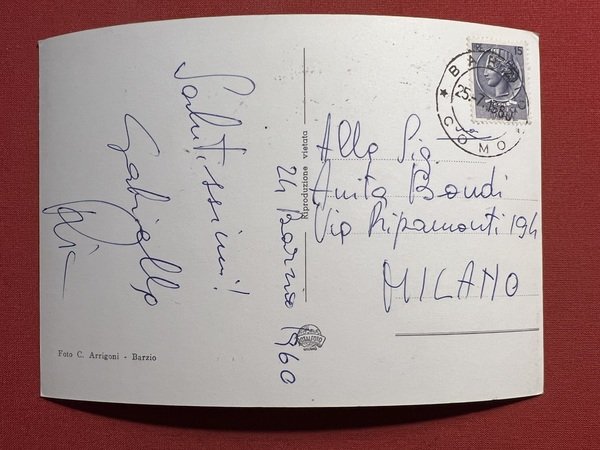 Salutissimi!
Gabriella
24 Barzio 1960
Riproduzione vietata
Alla Sig.
Anita Bondi
Via Ripamonti 194
MILANO
15
BARZIO
25.-7.1960
COMO
Foto C. Arrigoni - Barzio